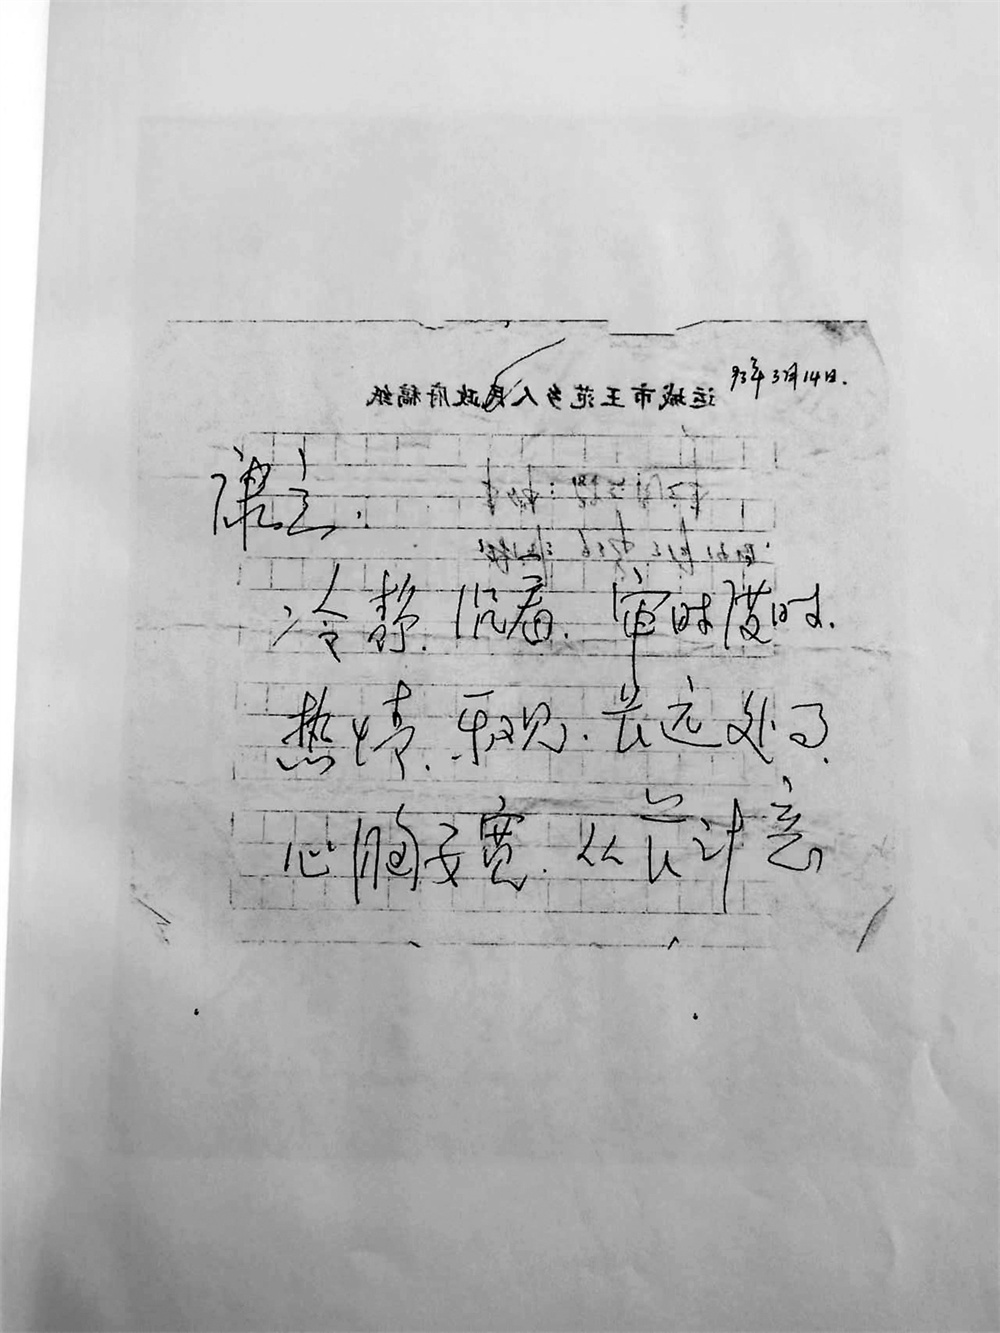 93年3月14日.
运城市王范乡人民政府稿纸
冷静.沉着.审时度时.
热情.乐观.长远处
心胸要宽.从长计意